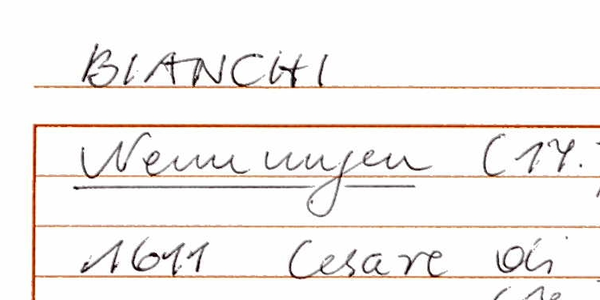 BIANCHI
Nennungen (17.
1611 Cesare di